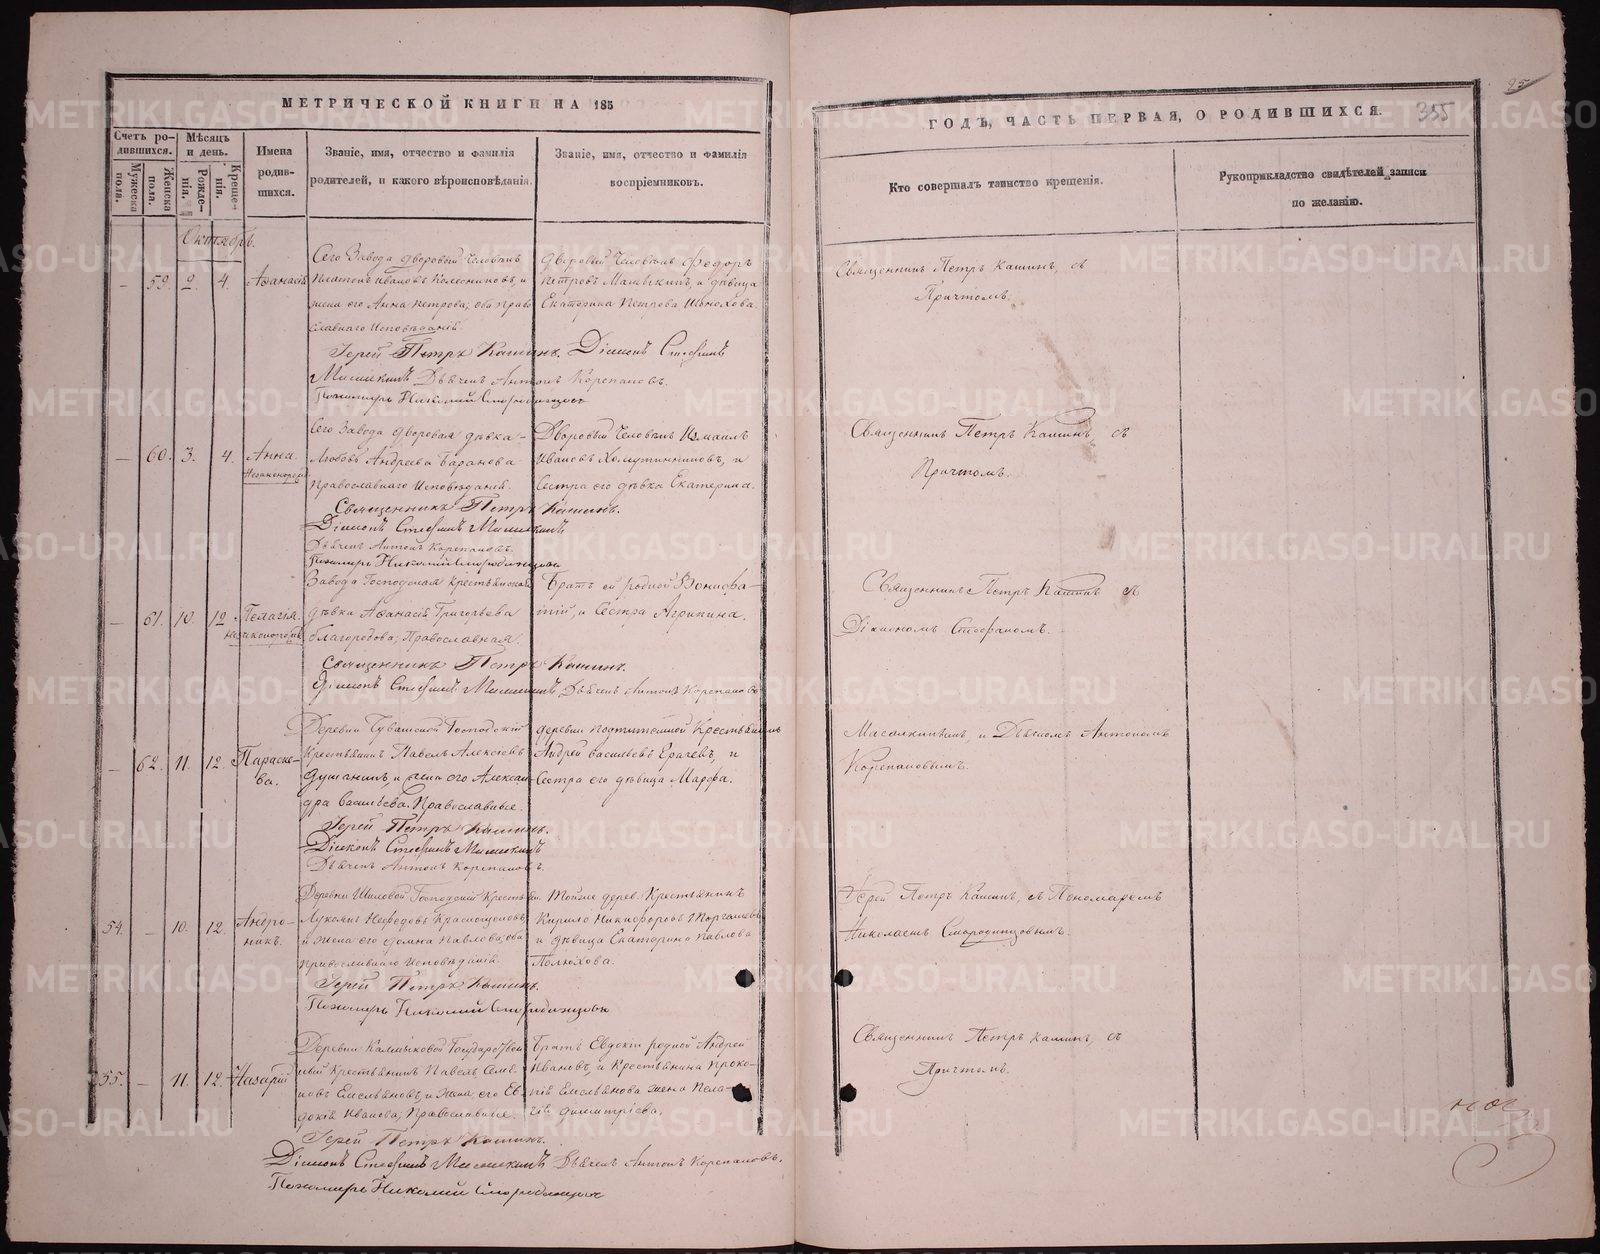 МЕТРИЧЕСКОЙ КНИГИ НА 185
Счетъ ро-
дившихся.
Мужеска
пола.
Женска
пола.
Мѣсяцъ
и день.
Рожде-
нія.
Креще-
нія.
Имена
родив-
шихся.
Званіе, имя, отчество и фамилія
родителей, и какого вѣроисповѣданія.
Званіе, имя, отчество и фамилія
воспріемниковъ.
Октябрь.
59. 2. 4. Аѳанасій
Сего Завода дворовый Человѣкъ
Ивановъ и
жена его Анна Петрова, оба Право-
славнаго Исповѣданій.
Дворовый Человѣкъ Ѳедоръ
Петровъ и дѣвица
Екатерина Петрова
Іерей Петръ Кашинъ. Діаконъ Стефанъ
Дьячекъ Антонъ Корепановъ.
Пономарь Николай Смородинцовъ
60. 3. 4. Анна
Незаконнорож
Сего Завода дворовая дѣвка
Любовь Андреева Баранова
Православнаго Исповѣданій.
Дворовый Человѣкъ Измаилъ
Ивановъ и
Сестра его дѣвка Екатерина.
Священникъ Петръ Кашинъ.
Діаконъ Стефанъ
Дьячекъ Антонъ Корепановъ.
Пономарь Николай Смородинцовъ
61. 10. 12 Пелагія
незаконорож
Завода Господская крестьянская
дѣвка Аѳанасія Григорьева
благородова, Православная.
Братъ ей родной
и Сестра Агрипина.
Священникъ Петръ Кашинъ.
Діаконъ Стефанъ Дьячекъ Антонъ Корепановъ
62. 11. 12. Параске-
ва.
Деревни Чувашской Господскій
Крестьянинъ Павелъ Алексѣевъ
и жена его Алексан-
дра Васильева. Православные.
деревни Крестьянинъ
Андрей Васильевъ и
Сестра его дѣвица Марфа.
Іерей Петръ Кашинъ.
Діаконъ Стефанъ
Дьячекъ Антонъ Корепановъ.
54. 10. 12. Андро-
никъ.
Деревни Шиловой Господскій Крестьян.
Нефедовъ Краснощоковъ,
и жена его Павлова, оба
Православнаго Исповѣданій.
Тойже дерев. Крестьянинъ
Кирило Никифоровъ
и дѣвица Екатерина Павлова
Полюхова.
Іерей Петръ Кашинъ.
Пономарь Николай Смородинцовъ
55. 11. 12. Назарій
Деревни Калмыковой Государствен
ный Крестьянинъ Павелъ Семе-
новъ Емельяновъ, и Жена его Ев-
докія Иванова, Православные.
Братъ Евдокіи родной Андрей
Ивановъ, и Крестьянина Проко-
пія Емельянова жена Пела-
гія Димитріева.
Іерей Петръ Кашинъ.
Діаконъ Стефанъ Дьячекъ Антонъ Корепановъ.
Пономарь Николай Смородинцовъ
ГОДЪ, ЧАСТЬ ПЕРВАЯ, О РОДИВШИХСЯ.
355
Кто совершалъ таинство крещенія.
Рукоприкладство свидѣтелей записи
по желанію.
Священникъ Петръ Кашинъ, съ
Причтомъ.
Священникъ Петръ Кашинъ, съ
Причтомъ.
Священникъ Петръ Кашинъ съ
Діакономъ Стефаномъ.
и Дьячкомъ Антономъ
Корепановымъ.
Іерей Петръ Кашинъ, съ Пономаремъ
Николаемъ Смородинцовымъ.
Священникъ Петръ Кашинъ, съ
Причтомъ.
METRIKI.GASO-URAL.RU